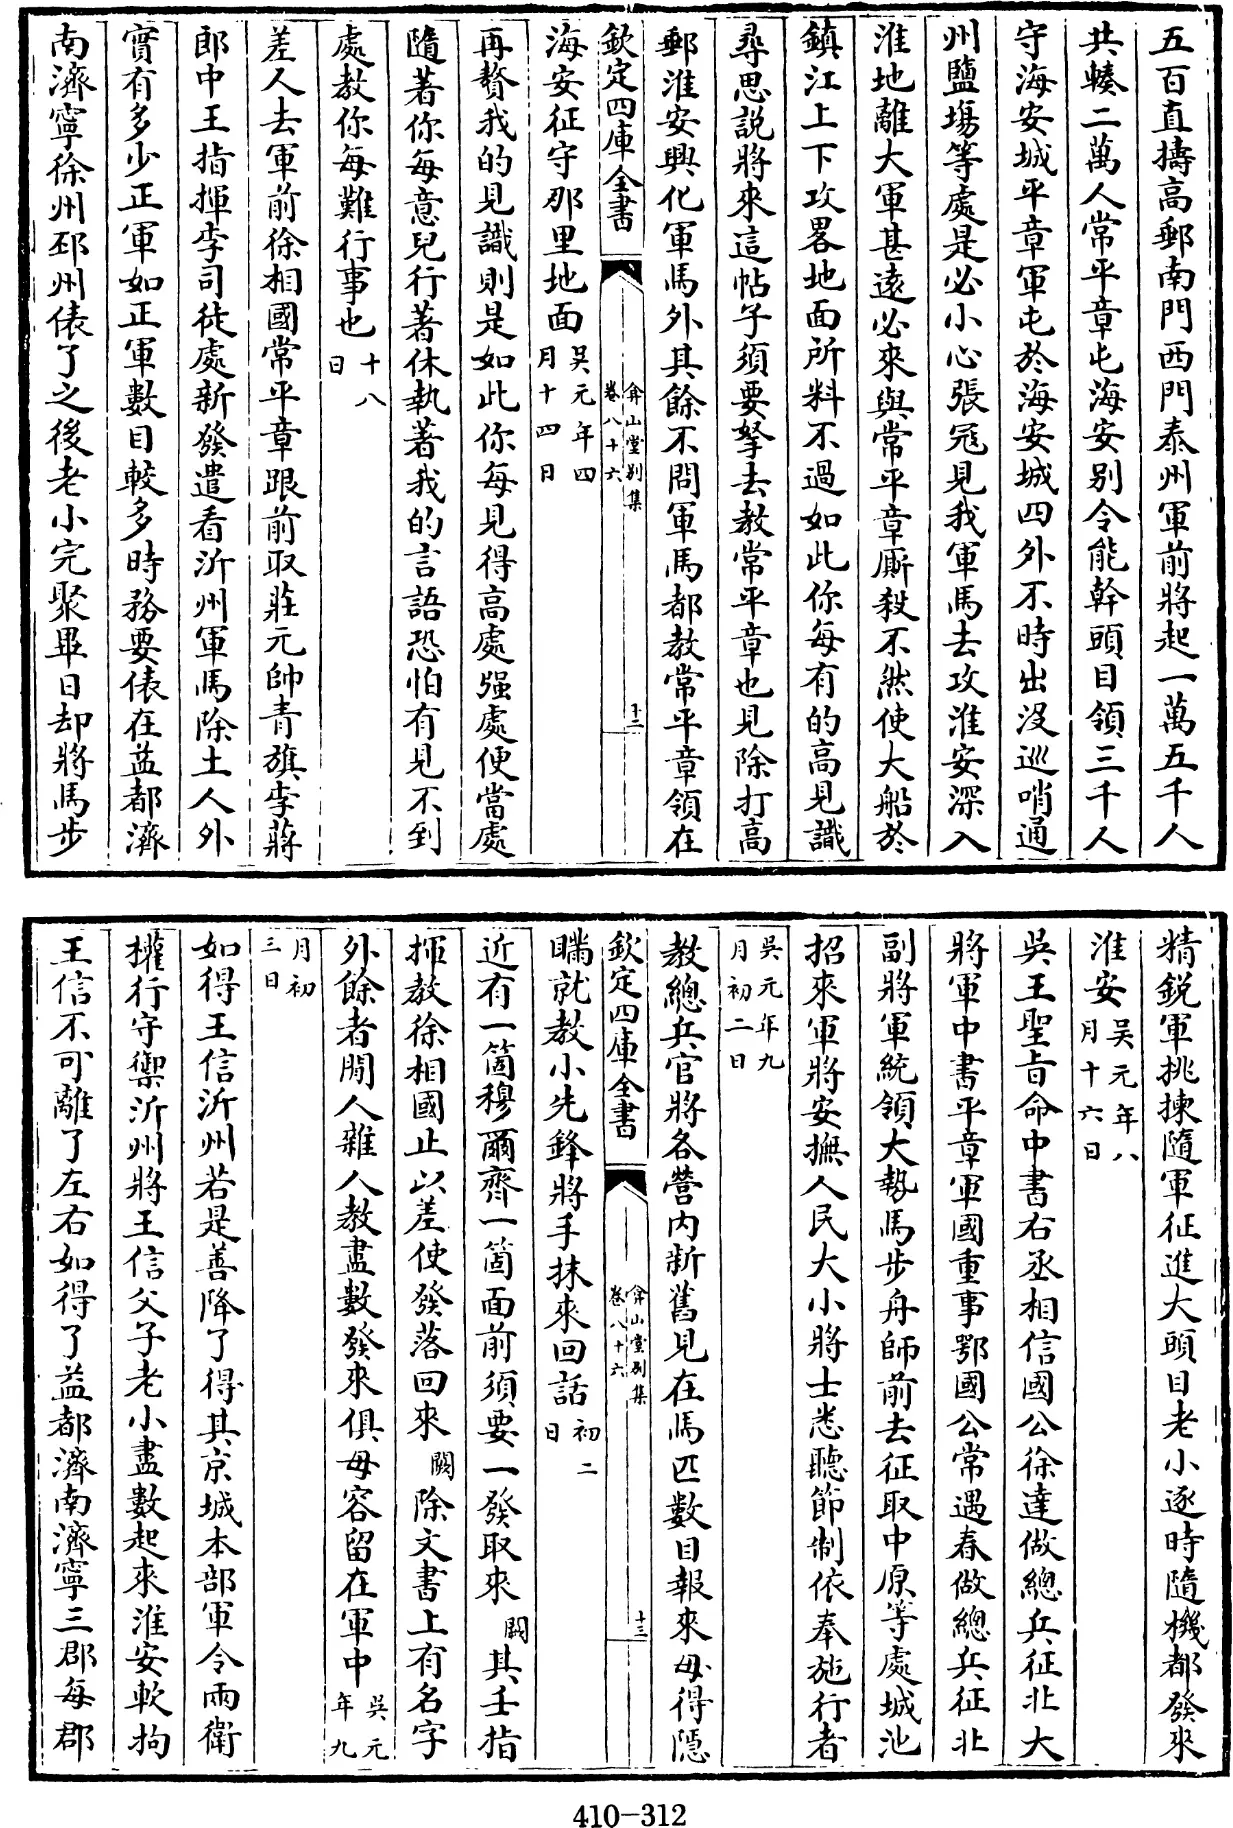 五百直擣高郵南門西門泰州軍前將起一萬五千人
共輳二萬人常平章屯海安别令能幹頭目領三千人
守海安城平章軍屯於海安城四外不時出没巡哨通
州鹽塲等處是必小心張冦見我軍馬去攻淮安深入
淮地離大軍甚逺必來與常平章厮殺不然使大船於
鎮江上下攻畧地面所料不過如此你每有的高見識
尋思説將來這帖子須要拏去教常平章也見除打高
郵淮安興化軍馬外其餘不問軍馬都教常平章領在
欽定四庫全書
弇山堂别集
卷八十六
十二
海安征守那里地面吳元年四月十四日
再贅我的見識則是如此你每見得高處强處便當處
隨著你每意兒行著休執著我的言語恐怕有見不到
處教你每難行事也十八日
差人去軍前徐相國常平章跟前取莊元帥青旗李蔣
郎中王指揮李司徒處新發遣看沂州軍馬除土人外
實有多少正軍如正軍數目較多時務要俵在益都濟
南濟寧徐州邳州俵了之後老小完聚畢日却將馬步
精鋭軍挑揀隨軍征進大頭目老小逐時隨機都發來
淮安吳元年八月十六日
吳王聖㫖命中書右丞相信國公徐達做總兵征北大
將軍中書平章軍國重事鄂國公常遇春做總兵征北
副將軍統領大勢馬步舟師前去征取中原等處城池
招來軍將安撫人民大小將士悉聽節制依奉施行者
吳元年九月初二日
教總兵官將各營内新舊見在馬匹數目報來毋得隱
欽定四庫全書
弇山堂别集
卷八十六
十三
瞞就教小先鋒將手抹來回話初二日
近有一箇穆爾齊一箇面前須要一發取來闕其壬指
揮教徐相國止以差使發落回來闕除文書上有名字
外餘者閒人雜人教盡數發來俱毋容留在軍中吳元年九
月初三日
如得王信沂州若是善降了得其京城本部軍令兩衛
權行守禦沂州將王信父子老小盡數起來淮安軟拘
王信不可離了左右如得了益都濟南濟寧三郡每郡
410-312